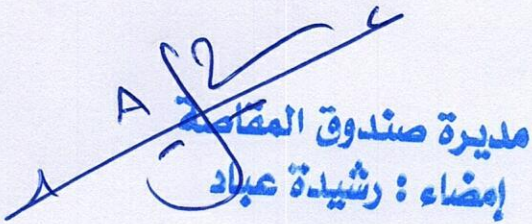 مديرة صندوق المقاصة
إمضاء : رشيدة عباد